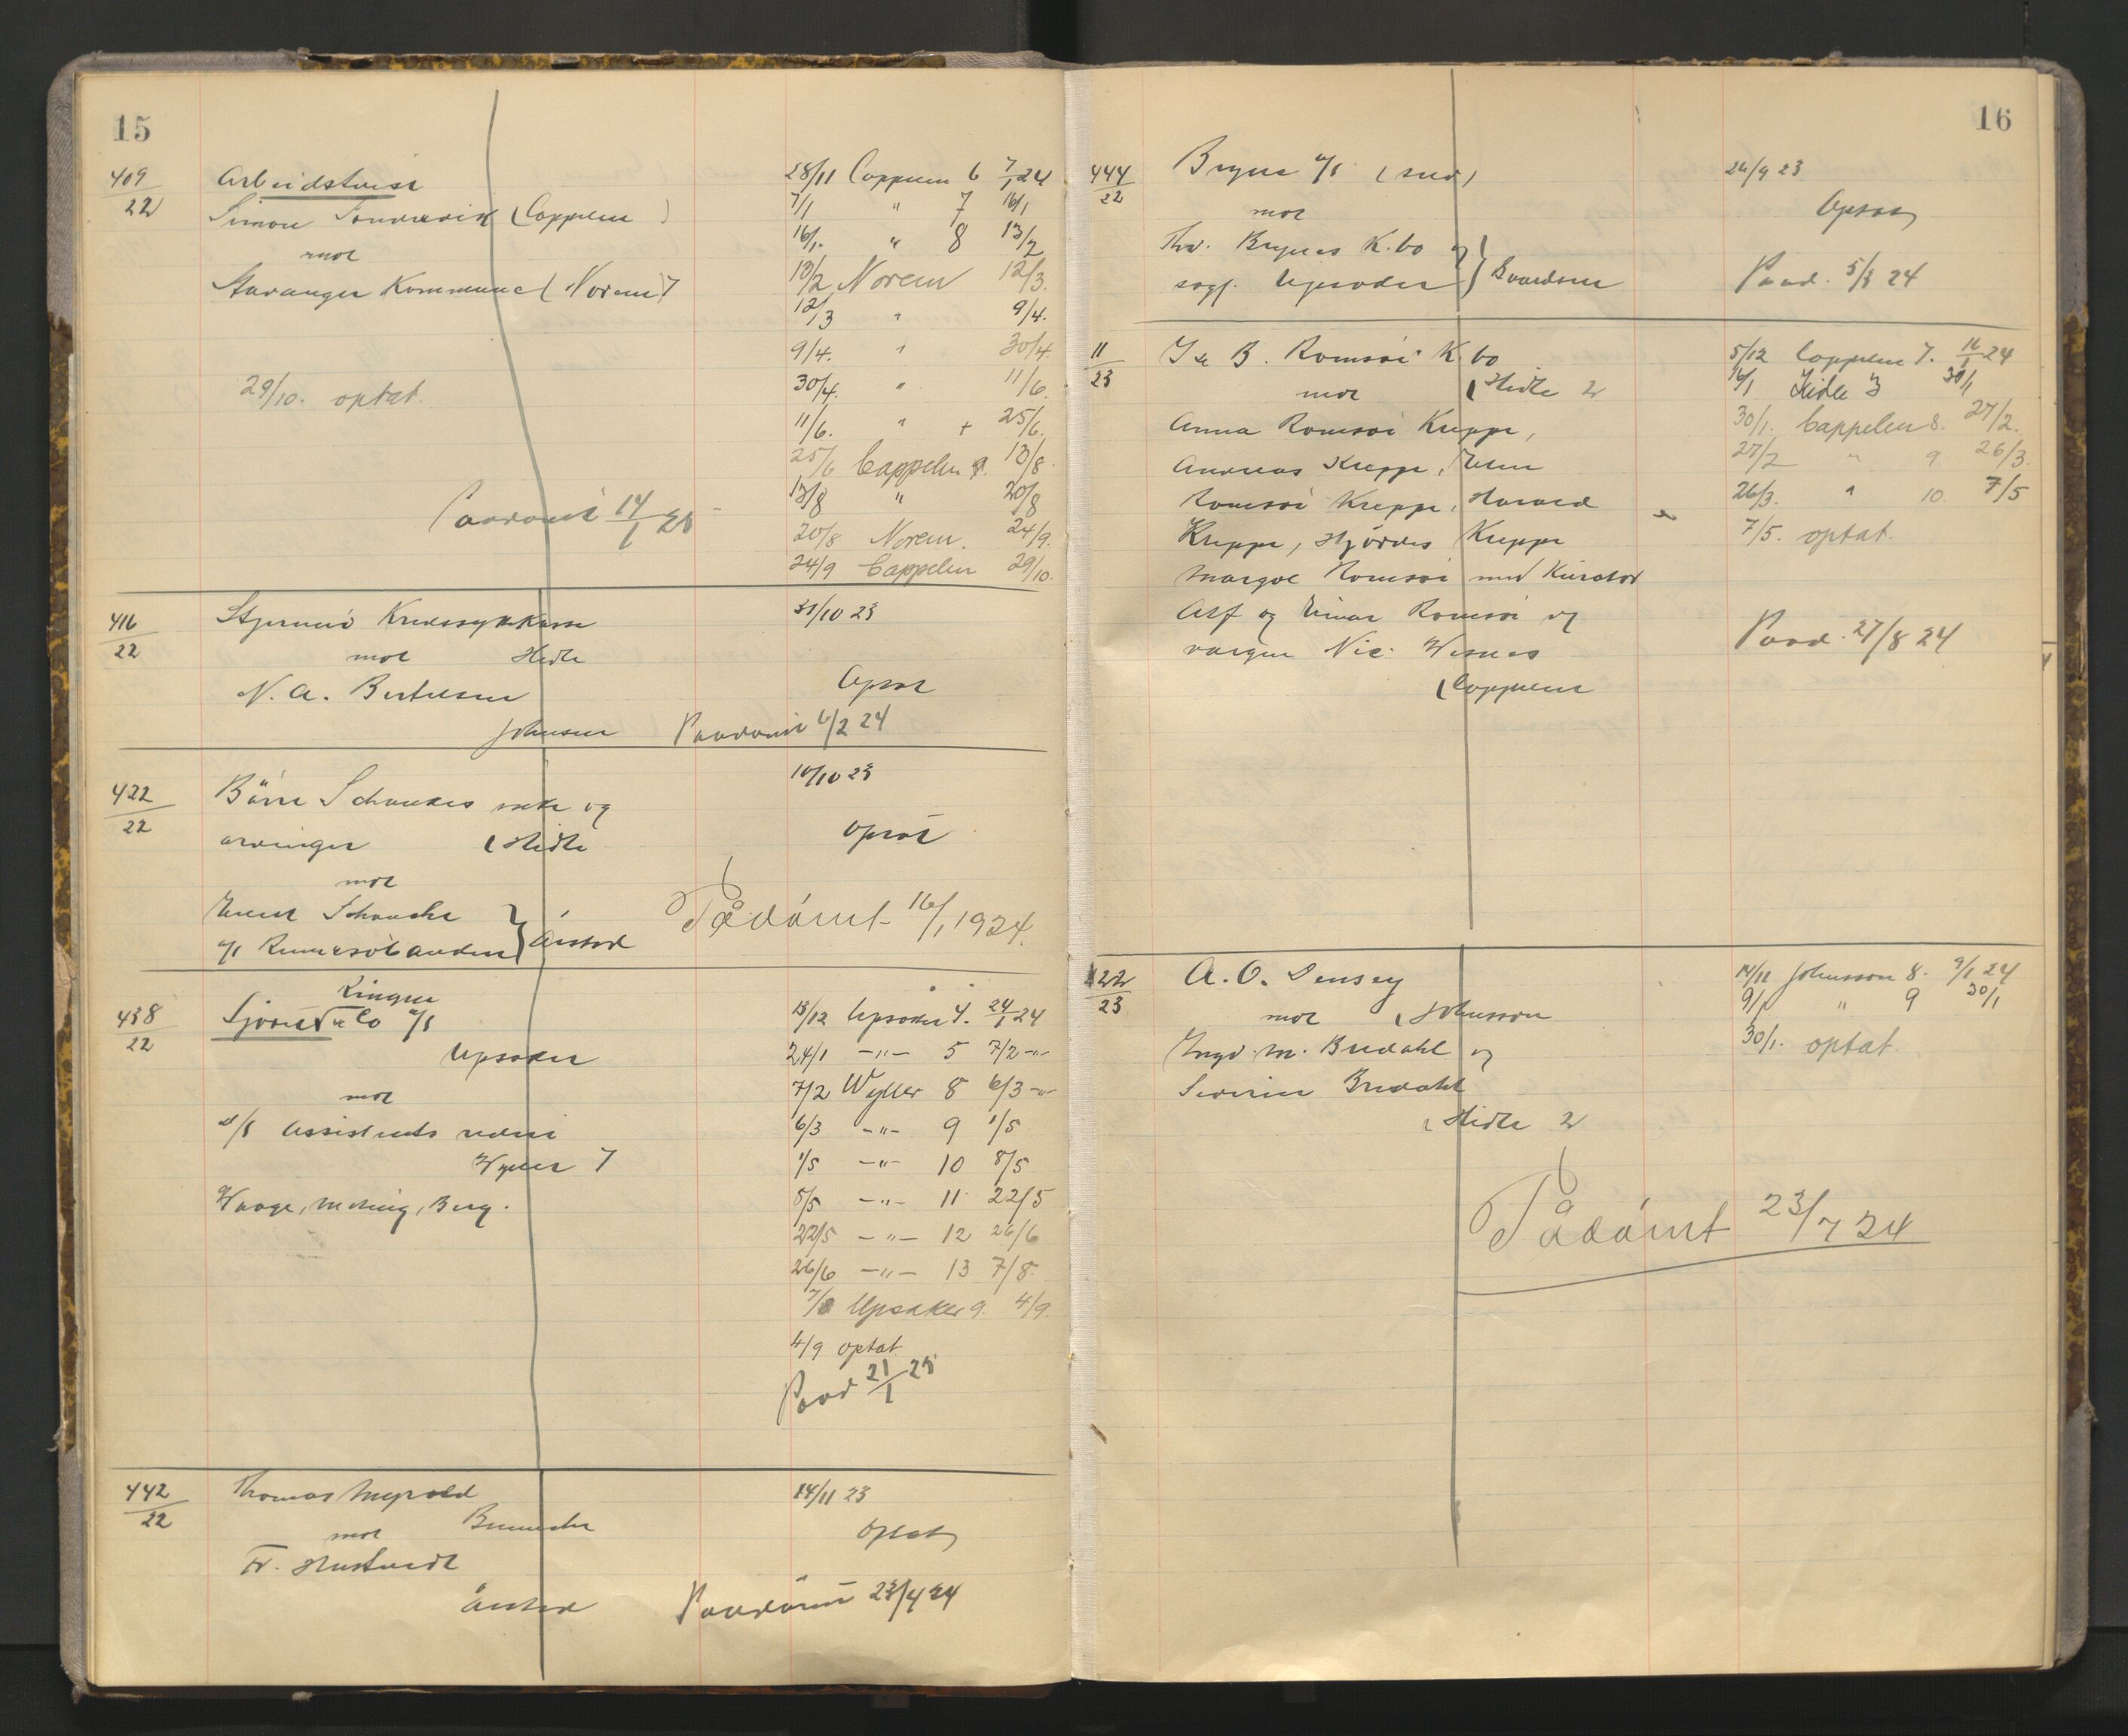 15
409/22 Arbeidstvist 28/11 Cappelen 6 7/1 24
Simon (Cappelen) 7/1 " 7 16/1
mot 16/1. " 8 13/2
Stavanger Kommune (Norem) 7 13/2 Norem 12/3.
12/3 " 9/4.
9/4. " 30/4.
29/10. optat. 30/4. " 11/6.
11/6. " + 25/6.
25/6 Cappelen 9. 13/8.
Paadömt 14/1 25 13/8 " 20/8
20/8 Norem. 24/9.
24/9 Cappelen 29/10.
416/22 Stjernerö Kredssykekasse 31/10 23
mot Hidle
N. A. Bertelsen Optat
Johnsen Paadömt 6/2 24
422/22 Börre Schankes enke og 10/10 23
arvinger (Hidle optat
mot
Schanche
a/s } Aarstad Pådömt 16/1 1924.
438/22 Ringen
& Co a/s 13/12 Opsaker 4. 24/1 24
Opsaker 24/1 -"- 5 7/2 -"-
mot 7/2 Wyller 8 6/3 -"-
a/s Assistents rederi 6/3 -"- 9 1/5
Wyller 7 1/5 -"- 10 8/5
Waage, Meling, Berg. 8/5 -"- 11 22/5
22/5 -"- 12 26/6
26/6 -"- 13 7/8
7/8 Opsaker 9. 4/9.
4/9 optat
Paad 21/1 25
442/22 Thomas 14/11 23
mot optat
Fr. Hustvedt
Aarstad Paadömt 23/4 24
16
444/22 Bryne a/s 26/9 23
mot Optat
Thv. Brynes K.bo og
sagf. Opsaker } Baardsen Paad. 5/3 24
11/23 B. Romsöi K.bo 5/12 Cappelen 7. 16/1 24
mot (Hidle 2 16/1 Hidle 3 30/1
Anna Romsöi Kreppe, 30/1. Cappelen 8. 27/2.
Andreas Kreppe, 27/2 " 9. 26/3.
Romsöi Kreppe, Harald 26/3. " 10. 7/5
Kreppe, Hjördis Kreppe 7/5. optat.
Margot Romsöi med Kurator
Alf og Einar Romsöi og
vergen Nic. Wesnes Paad. 27/8 24
(Cappelen
122/23 A. O. Densey 14/11 Johnsson 8. 9/1 24
mot (Johnsson 9/1 " 9 30/1
Ingv. M. Bredahl og 30/1. optat.
Severin Bredahl
(Hidle 2
Pådömt 23/7 24